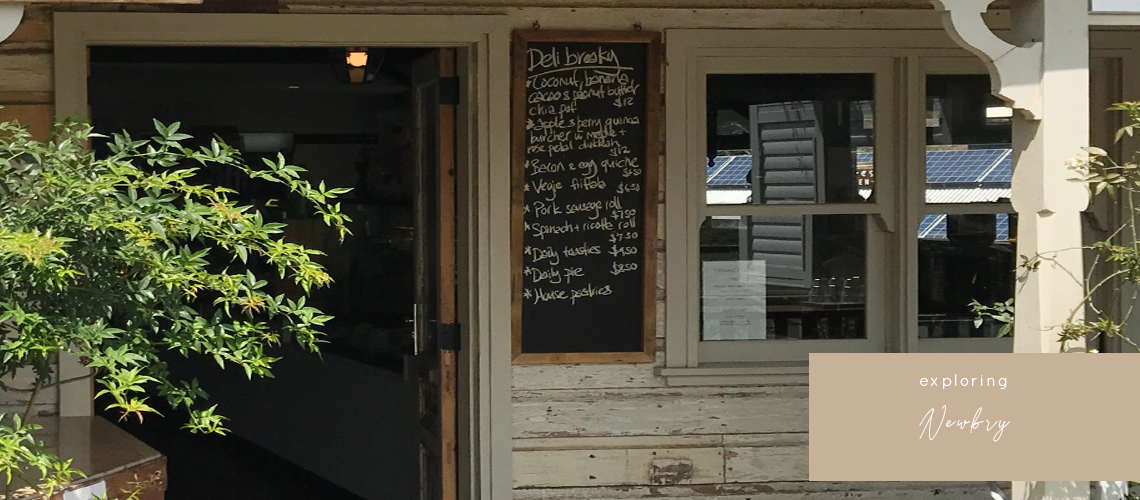 Deli breaky
* Coconut, banana
cacao & peanut butter
chia pot $12
* Apple & berry quinoa
burcher w maple +
rose petal dukkah $12
* Bacon & egg quiche
$6.50
* Vegie frittata $6.50
* Pork sausage roll
$7.50
* Spinach + ricotta roll
$7.50
* Daily toasties $9.50
* Daily pie $8.50
* House pastries
exploring
Newbry